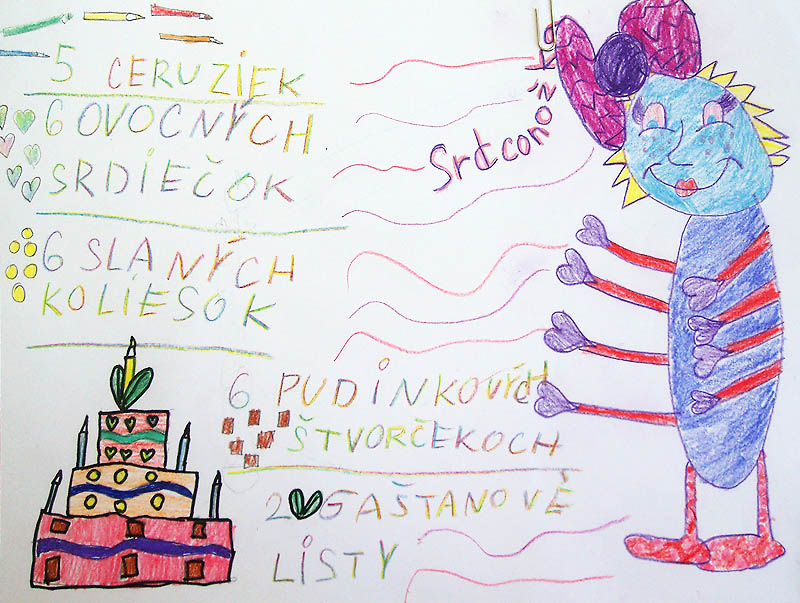 5 CERUZIEK
6 OVOCNÝCH
SRDIEČOK
6 SLANÝCH
KOLIESOK
Srdconožka
6 PUDINKOVÝCH
ŠTVORČEKOCH
2 GAŠTANOVÉ
LISTY